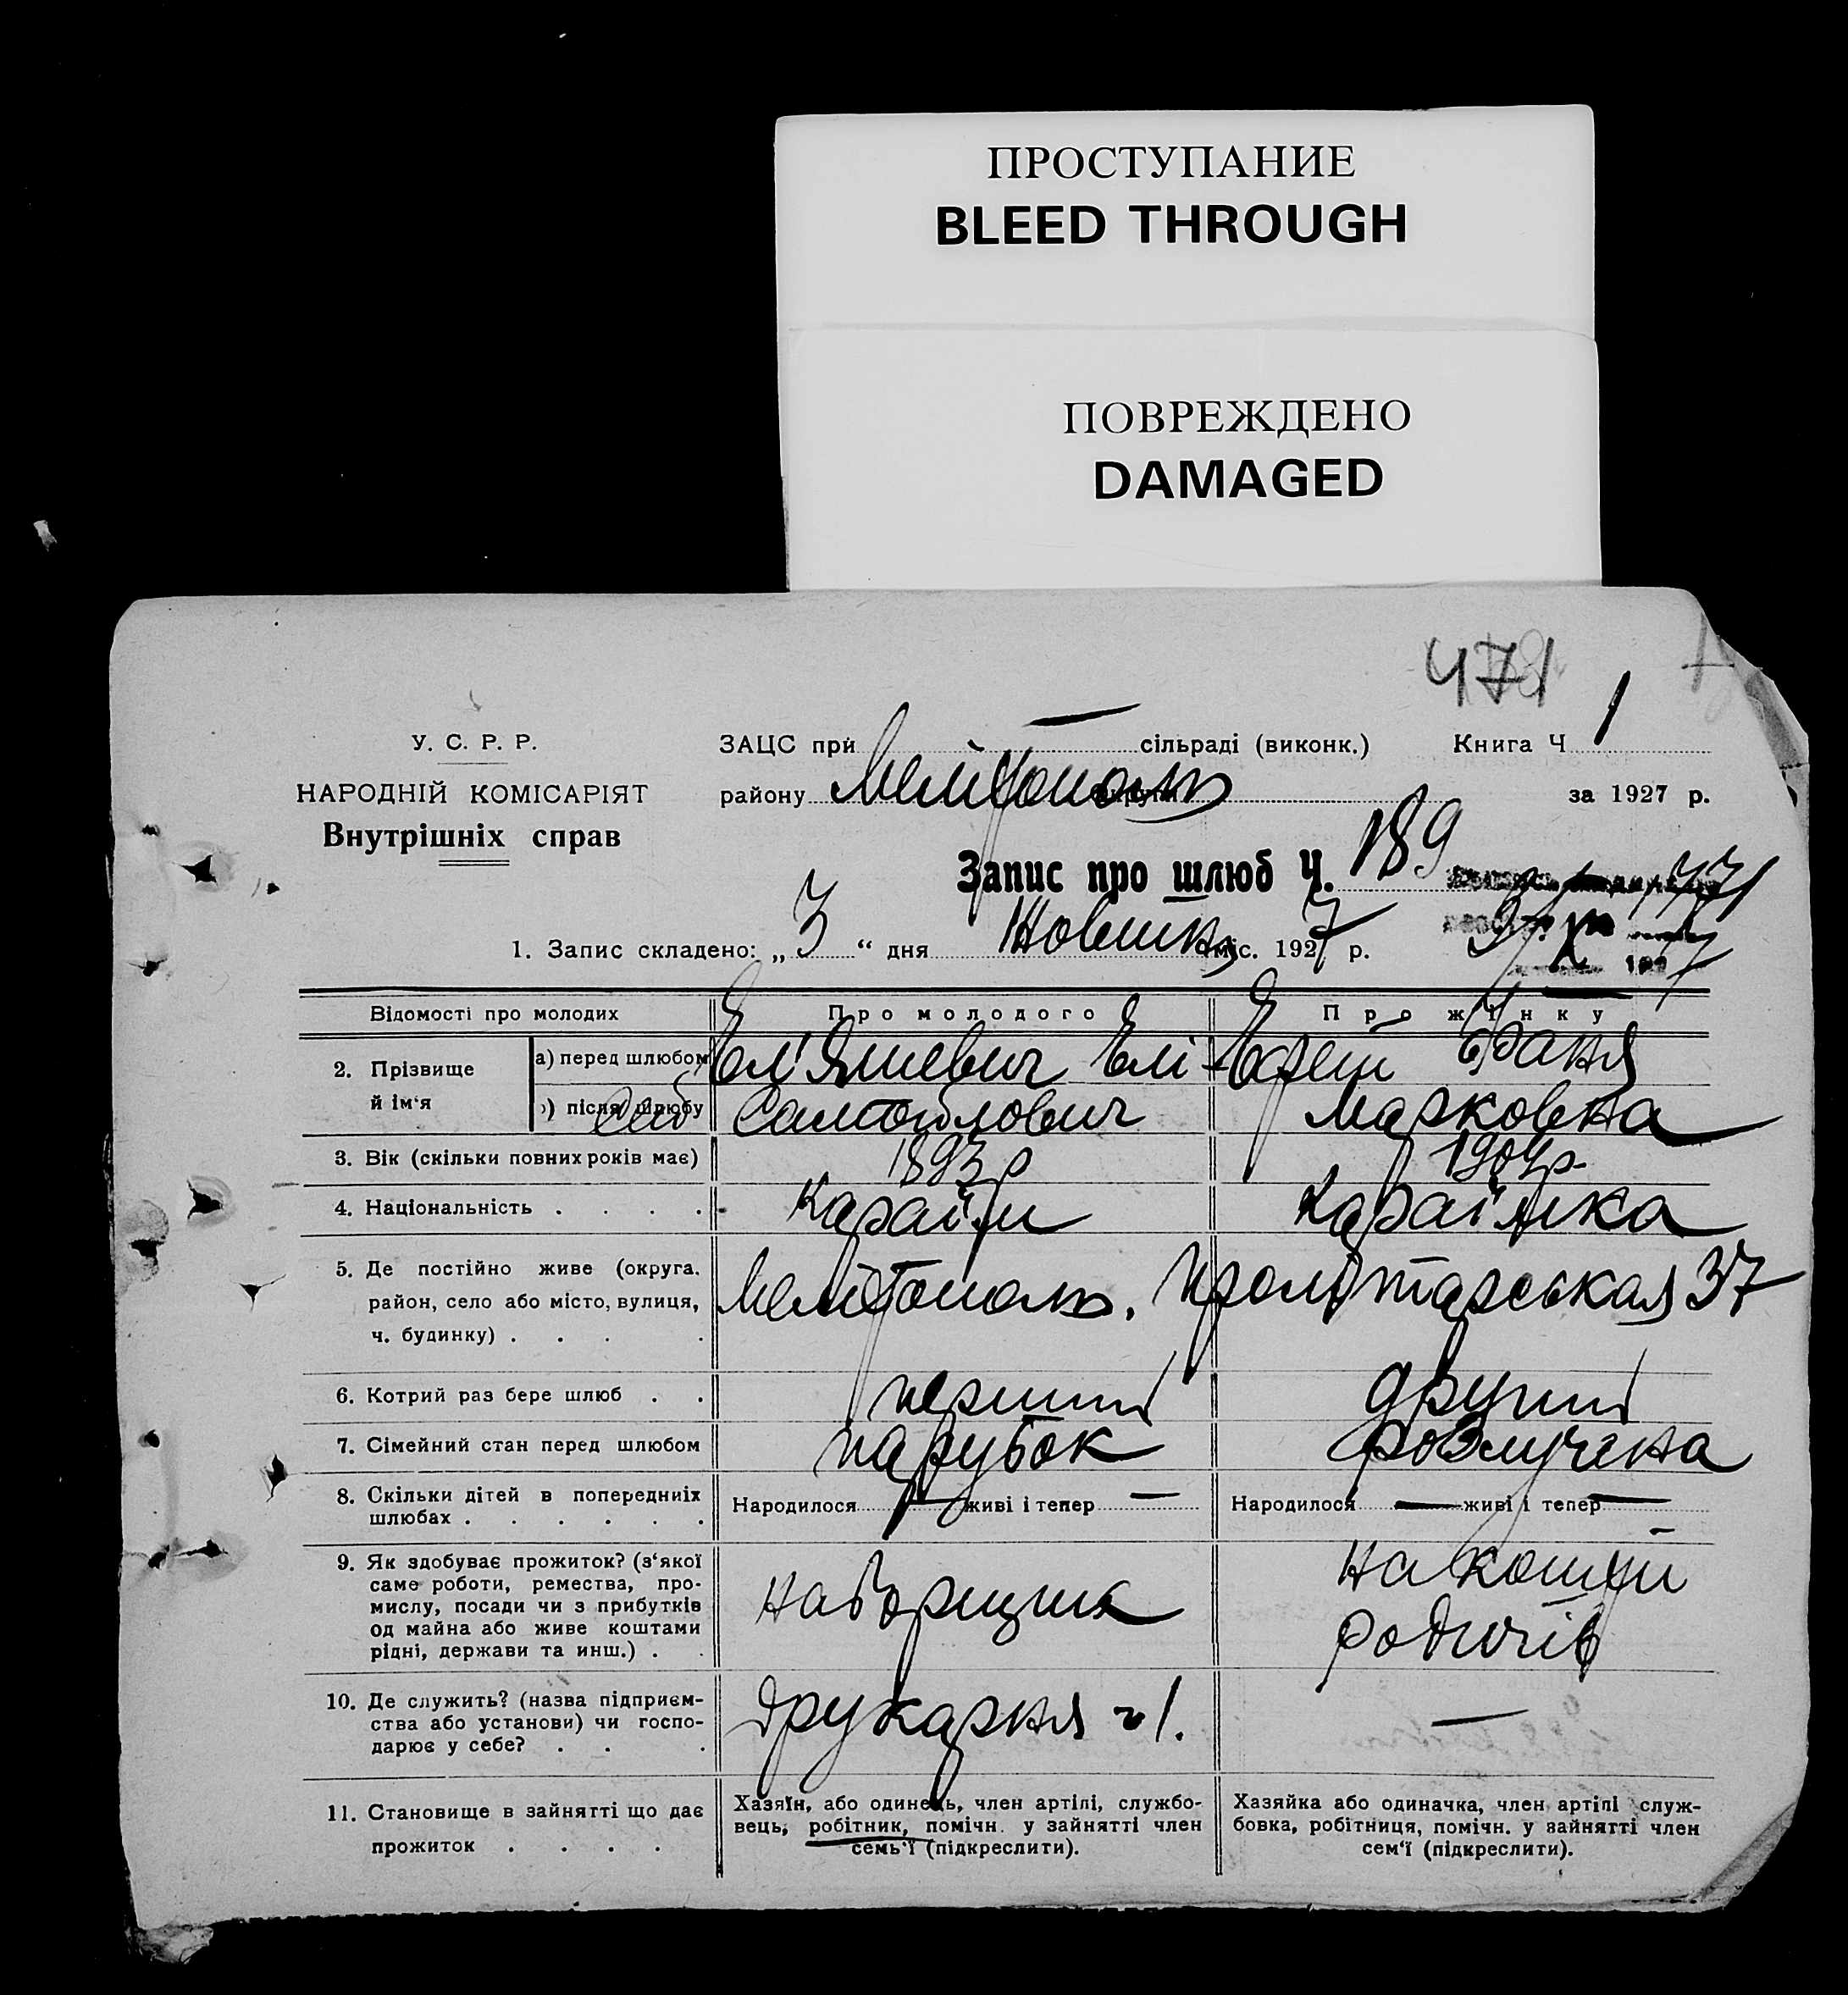 ПРОСТУПАНИЕ
BLEED THROUGH
ПОВРЕЖДЕНО
DAMAGED
471
У. С. Р. Р.
НАРОДНІЙ КОМІСАРІЯТ
Внутрішніх справ
ЗАЦС при — сільраді (виконк.) Книга Ч 1
району Мелітополь за 1927 р.
Запис про шлюб Ч. 189
1. Запис складено: „ 3 “ дня Жовтня міс. 1927 р.
Відомості про молодих Про молодого Про жінку
2. Прізвище й ім‘я
а) перед шлюбом
) після шлюбу
Ел'яшевич Елі
Самойлович
Фаня
Марковна
3. Вік (скільки повних років має) 1893 р 1904 р.
4. Національність . . . . Караїм Караїмка
5. Де постійно живе (округа.
район, село або місто, вулиця,
ч. будинку) . . . .
Мелітополь. Пролітарськая 37
6. Котрий раз бере шлюб . . перший другий
7. Сімейний стан перед шлюбом парубок розлучена
8. Скільки дітей в попередниіх
шлюбах . . . . . .
Народилося — живі і тепер —
Народилося — живі і тепер —
9. Як здобуває прожиток? (з‘якої
саме роботи, ремества, про-
мислу, посади чи з прибутків
од майна або живе коштами
рідні, держави та инш.) . .
наборщик
на кошти
родичів
10. Де служить? (назва підприєм-
ства або установи) чи госпо-
дарює у себе? . . .
друкарня ч 1.
—
11. Становище в зайнятті що дає
прожиток . . . .
Хазяїн, або одинець, член артілі, службо-
вець, робітник, помічн. у зайнятті член
семь‘ї (підкреслити).
Хазяйка або одиначка, член артілі служ-
бовка, робітниця, помічн. у зайнятті член
сем‘ї (підкреслити).